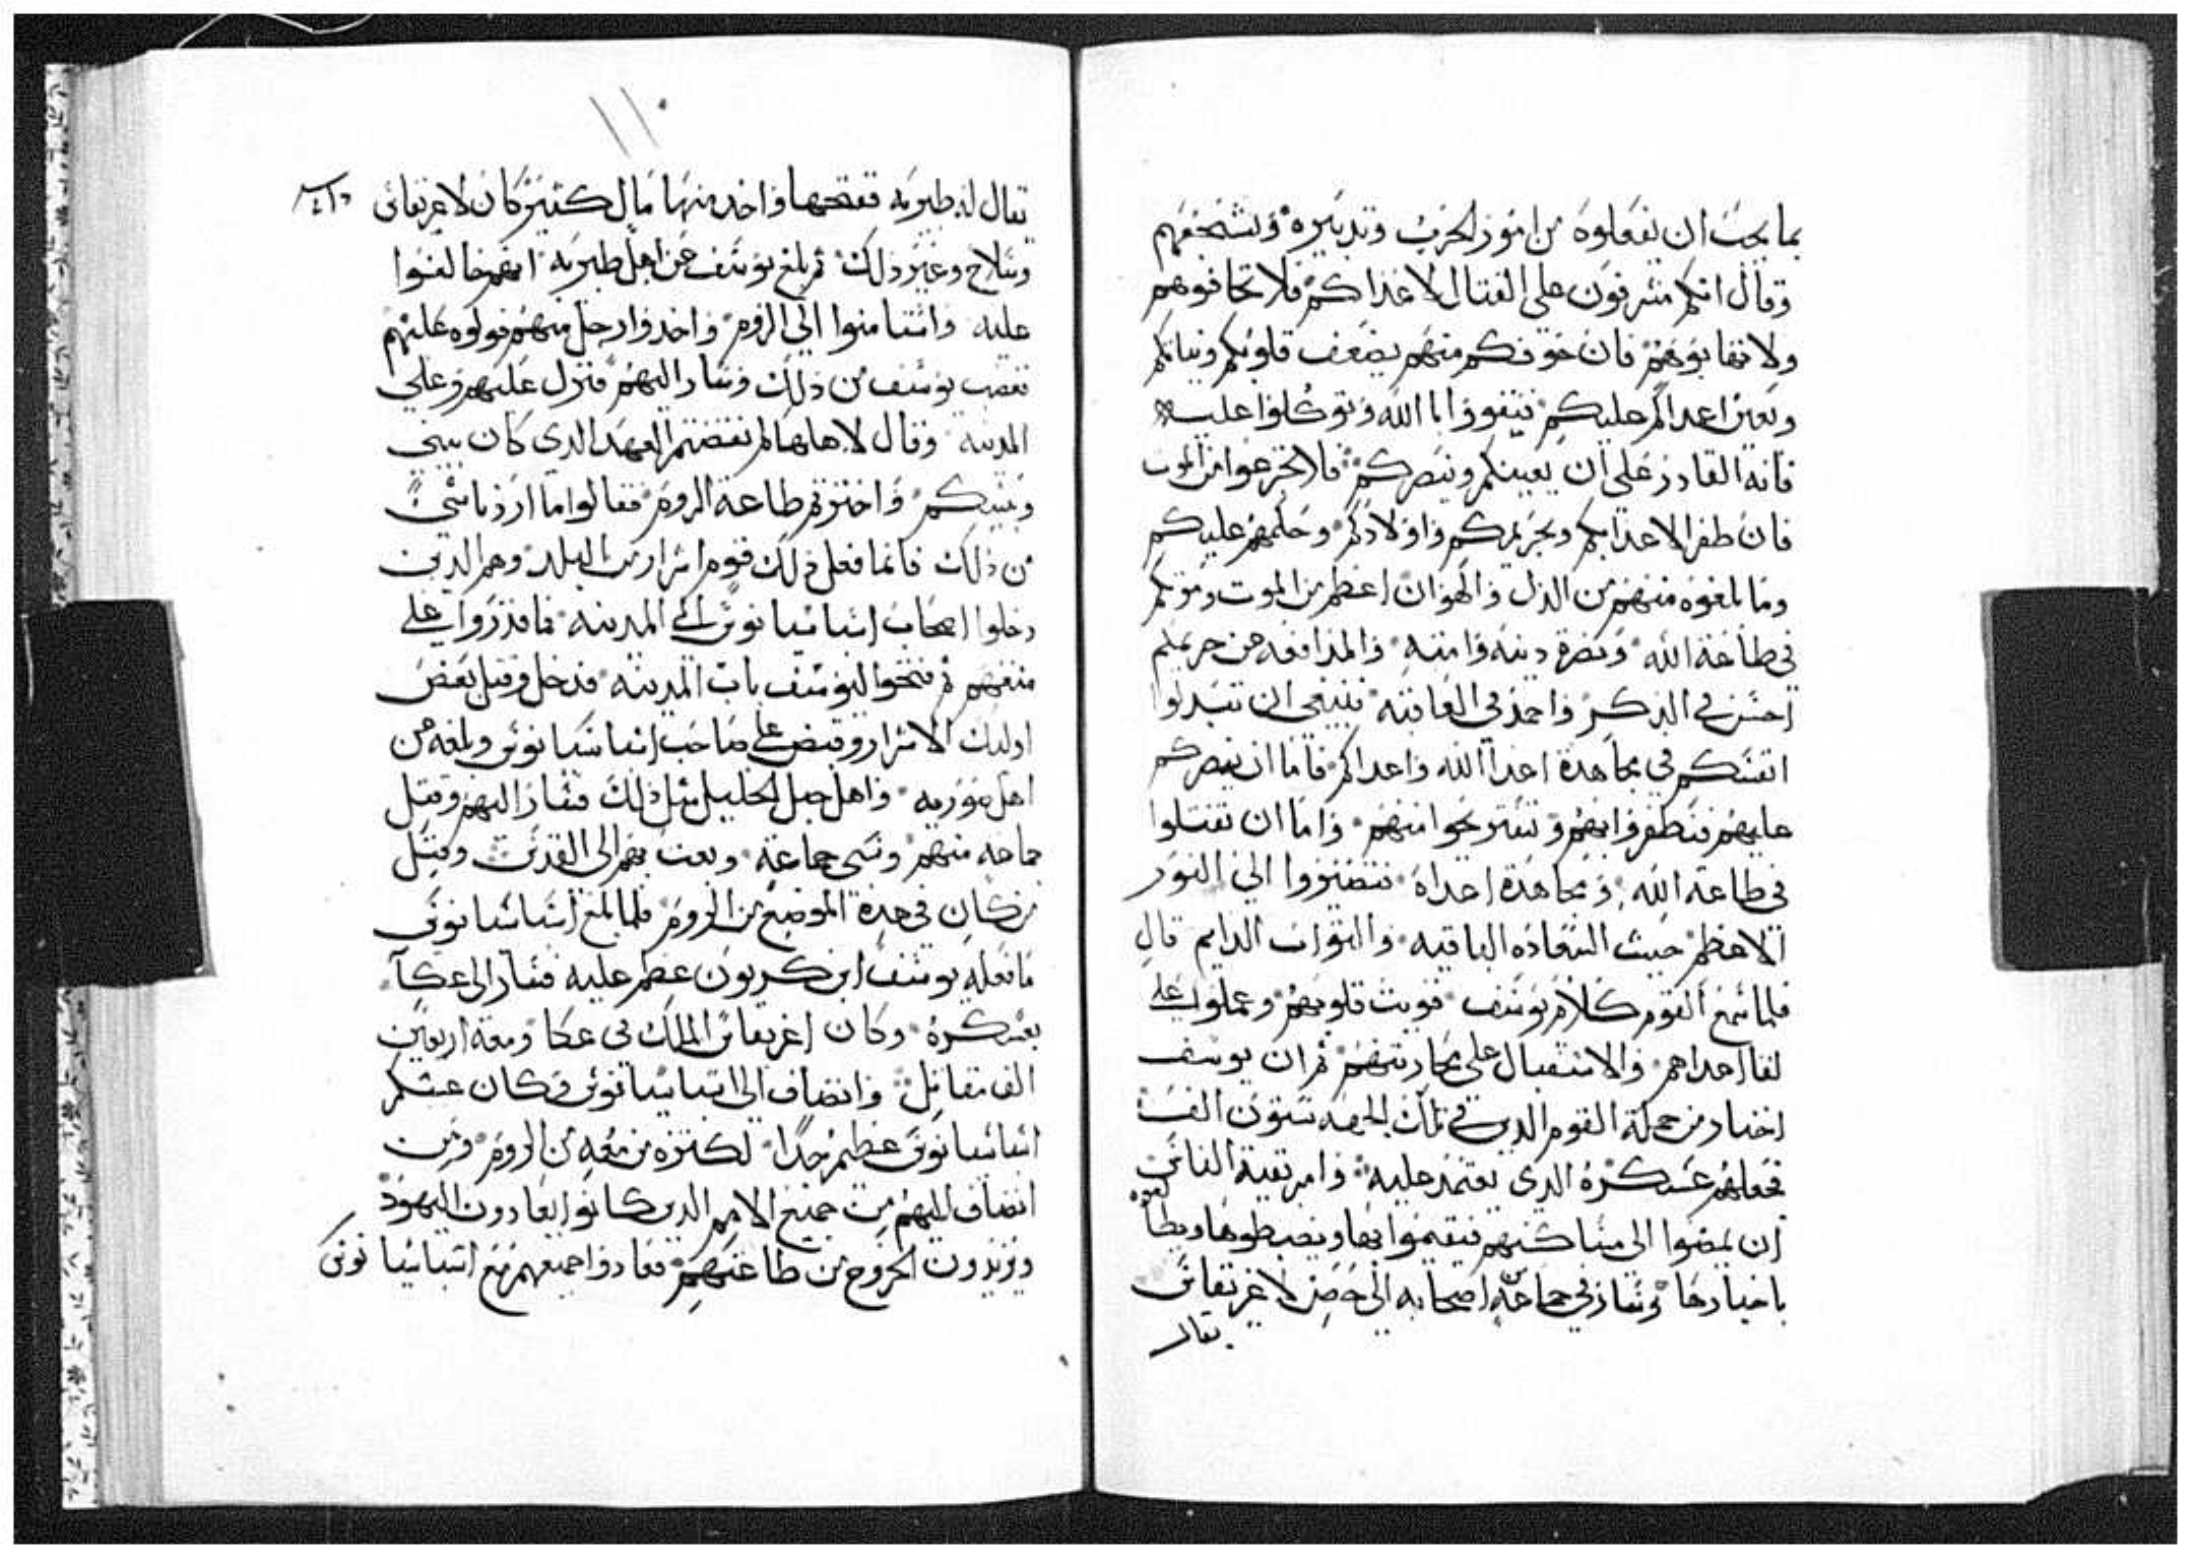 بما يجب ان يفعلوه من امور الحرب وتدبيره وشجعهم
وقال انكم مشرفون على القتال لاعداكم فلا تخافوهم
ولا تهابوهم فان خوفكم منهم يضعف قلوبكم ونياتكم
ويعين اعداكم عليكم فثقوا بالله وتوكلوا عليه
فانه القادر على ان يعينكم وينصركم فلا تجزعوا من الموت
فان ظفر الاعدا بكم وبحريمكم واولادكم وحكمهم عليكم
وما تلقوه منهم من الذل والهوان اعظم من الموت وموتكم
في طاعة الله ونصرة دينه وامته والمدافعه عن حريمكم
احسن في الذكر واحمد في العاقبه فينبغي ان تبدلوا
انفسكم في مجاهدة اعدا الله واعداكم فاما ان ينصركم
عليهم فتظفروا بهم وتستريحوا منهم واما ان تقتلوا
في طاعة الله ومجاهدة اعداه فتصيروا الى النور
الاعظم حيث السعاده الباقيه والثواب الدايم قال
فلما سمع القوم كلام يوسف قويت قلوبهم وعملوا على
لقا اعداهم والاستقبال على محاربتهم ثم ان يوسف
اختار من جملة القوم الدين في تلك الجهه ستون الف
فجعلهم عسكره الدي يعتمد عليه وامر بقية الناس
ان يمضوا الى مساكنهم فيقيموا بها ويضبطوها
باختيارها وسار في جماعة اصحابه الى حصن لاغريفاس
يقال
يقال له طبريه ففتحها واخد منها مال كثير كان لاغريفاس
وسلاح وغير ذلك ثم بلغ يوسف عن اهل طبريه انهم خالفوا
عليه واستامنوا الى الروم واخدوا رجل منهم فولوه عليهم
فغضب يوسف من ذلك وسار اليهم فنزل عليهم وعلى
المدينه وقال لاهلها لم نقضتم العهد الدي كان بيني
وبينكم واخترتم طاعة الروم فقالوا ما اردنا شي
من ذلك فانما فعل ذلك قوم اشرار من البلد وهم الدين
دخلوا اصحاب اسباسيانوس الى المدينه فما قدروا على
منعهم ثم فتحوا ليوسف باب المدينه فدخل وقتل بعض
اوليك الاشرار وقبض على صاحب اسباسيانوس وبلغه عن
اهل صوريه واهل جبل الخليل مثل ذلك فسار اليهم وقتل
جماعه منهم وسبى جماعة وبعث بهم الى القدس وقتل
من كان في هده المواضع من الروم فلما بلغ اسباسيانوس
ما فعله يوسف ابن كريون عظم عليه فسار الى عكا
بعسكره وكان اغريفاس الملك في عكا ومعه اربعين
الف مقاتل وانضاف الى اسباسيانوس وكان عسكر
اسباسيانوس عظيم جدا لكثرة من معه من الروم ومن
انضاف اليهم من جميع الامم الدين كانوا يعادون اليهود
ويريدون الخروج من طاعتهم فعادوا جميعهم مع اسباسيانوس